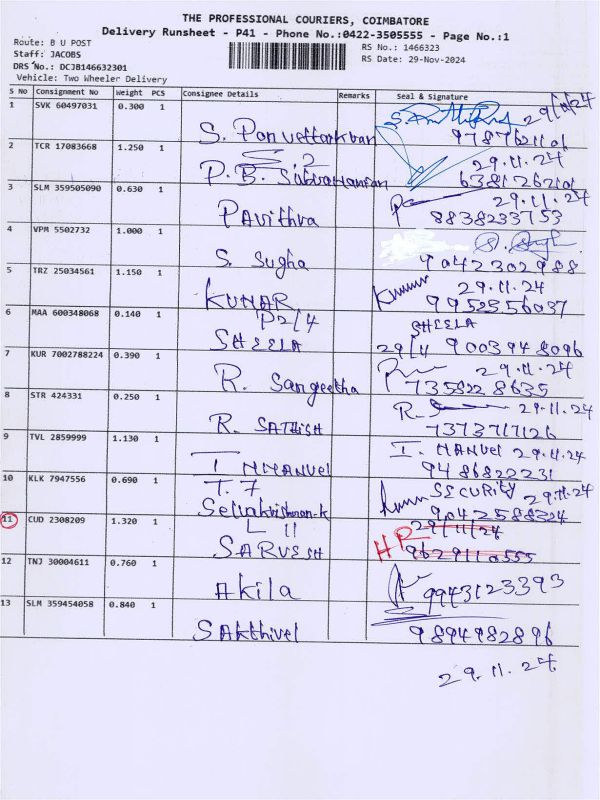 THE PROFESSIONAL COURIERS, COIMBATORE
Delivery Runsheet - P41 - Phone No.:0422-3505555 - Page No.:1
Route: B U POST
RS No.: 1466323
Staff: JACOBS
RS Date: 29-Nov-2024
DRS No.: DCJB146632301
Vehicle: Two Wheeler Delivery
S No Consignment No Weight PCS Consignee Details Remarks Seal & Signature
1 SVK 60497031 0.300 1 29/11/24
S. Ponvettarkvan 9787621101
2 TCR 17083668 1.250 1 S.2 29.11.24
P.B. Subramanian 6381262101
3 SLM 359505090 0.630 1 29.11.24
Pavithra 8838233753
4 VPM 5502732 1.000 1
S. Sugha 9042302988
5 TRZ 25034561 1.150 1 Kumar 29.11.24
KUMAR 9952356037
6 MAA 600348068 0.140 1 P2/4 SHEELA
SHEELA 29/11 9003948096
7 KUR 7002788224 0.390 1 29.11.24
R. Sangeetha 7358228635
8 STR 424331 0.250 1 R. S 29.11.24
R. SATHISH 7373717126
9 TVL 2859999 1.130 1 I. MANUEL 29.11.24
I MMANUEL 9486822231
10 KLK 7947556 0.690 1 T.7 SECURITY 29.11.24
Selvakrishnan-k 9042588324
11 CUD 2308209 1.320 1 L 11 29/11/24
SARVESH HR 9629110555
12 TNJ 30004611 0.760 1
Akila 9943123393
13 SLM 359454058 0.840 1
Sakthivel 9894982896
29.11.24